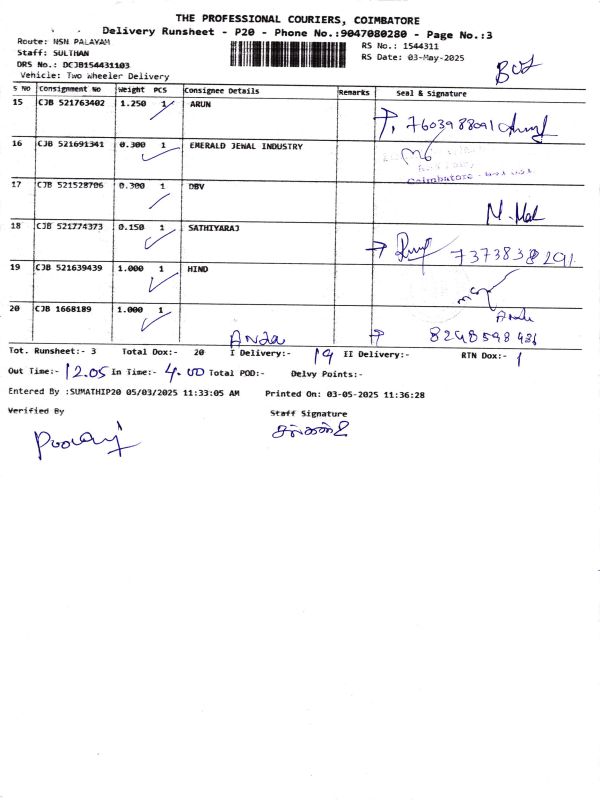 THE PROFESSIONAL COURIERS, COIMBATORE
Delivery Runsheet - P20 - Phone No.:9047080280 - Page No.:3
Route: NSN PALAYAM
RS No.: 1544311
Staff: SULTHAN
RS Date: 03-May-2025
DRS No.: DCJB154431103
Vehicle: Two Wheeler Delivery
S No Consignment No Weight PCS Consignee Details Remarks Seal & Signature
15 CJB 521763402 1.250 1 ARUN
7603988091
16 CJB 521691341 0.300 1 EMERALD JEWAL INDUSTRY
Coimbatore
17 CJB 521528706 0.300 1 DBV
18 CJB 521774373 0.150 1 SATHIYARAJ
7373838291
19 CJB 521639439 1.000 1 HIND
20 CJB 1668189 1.000 1
8248598436
Tot. Runsheet:- 3 Total Dox:- 20 I Delivery:- 19 II Delivery:- RTN Dox:- 1
Out Time:- 12.05 In Time:- 4.00 Total POD:- Delvy Points:-
Entered By :SUMATHIP20 05/03/2025 11:33:05 AM Printed On: 03-05-2025 11:36:28
Verified By
Staff Signature